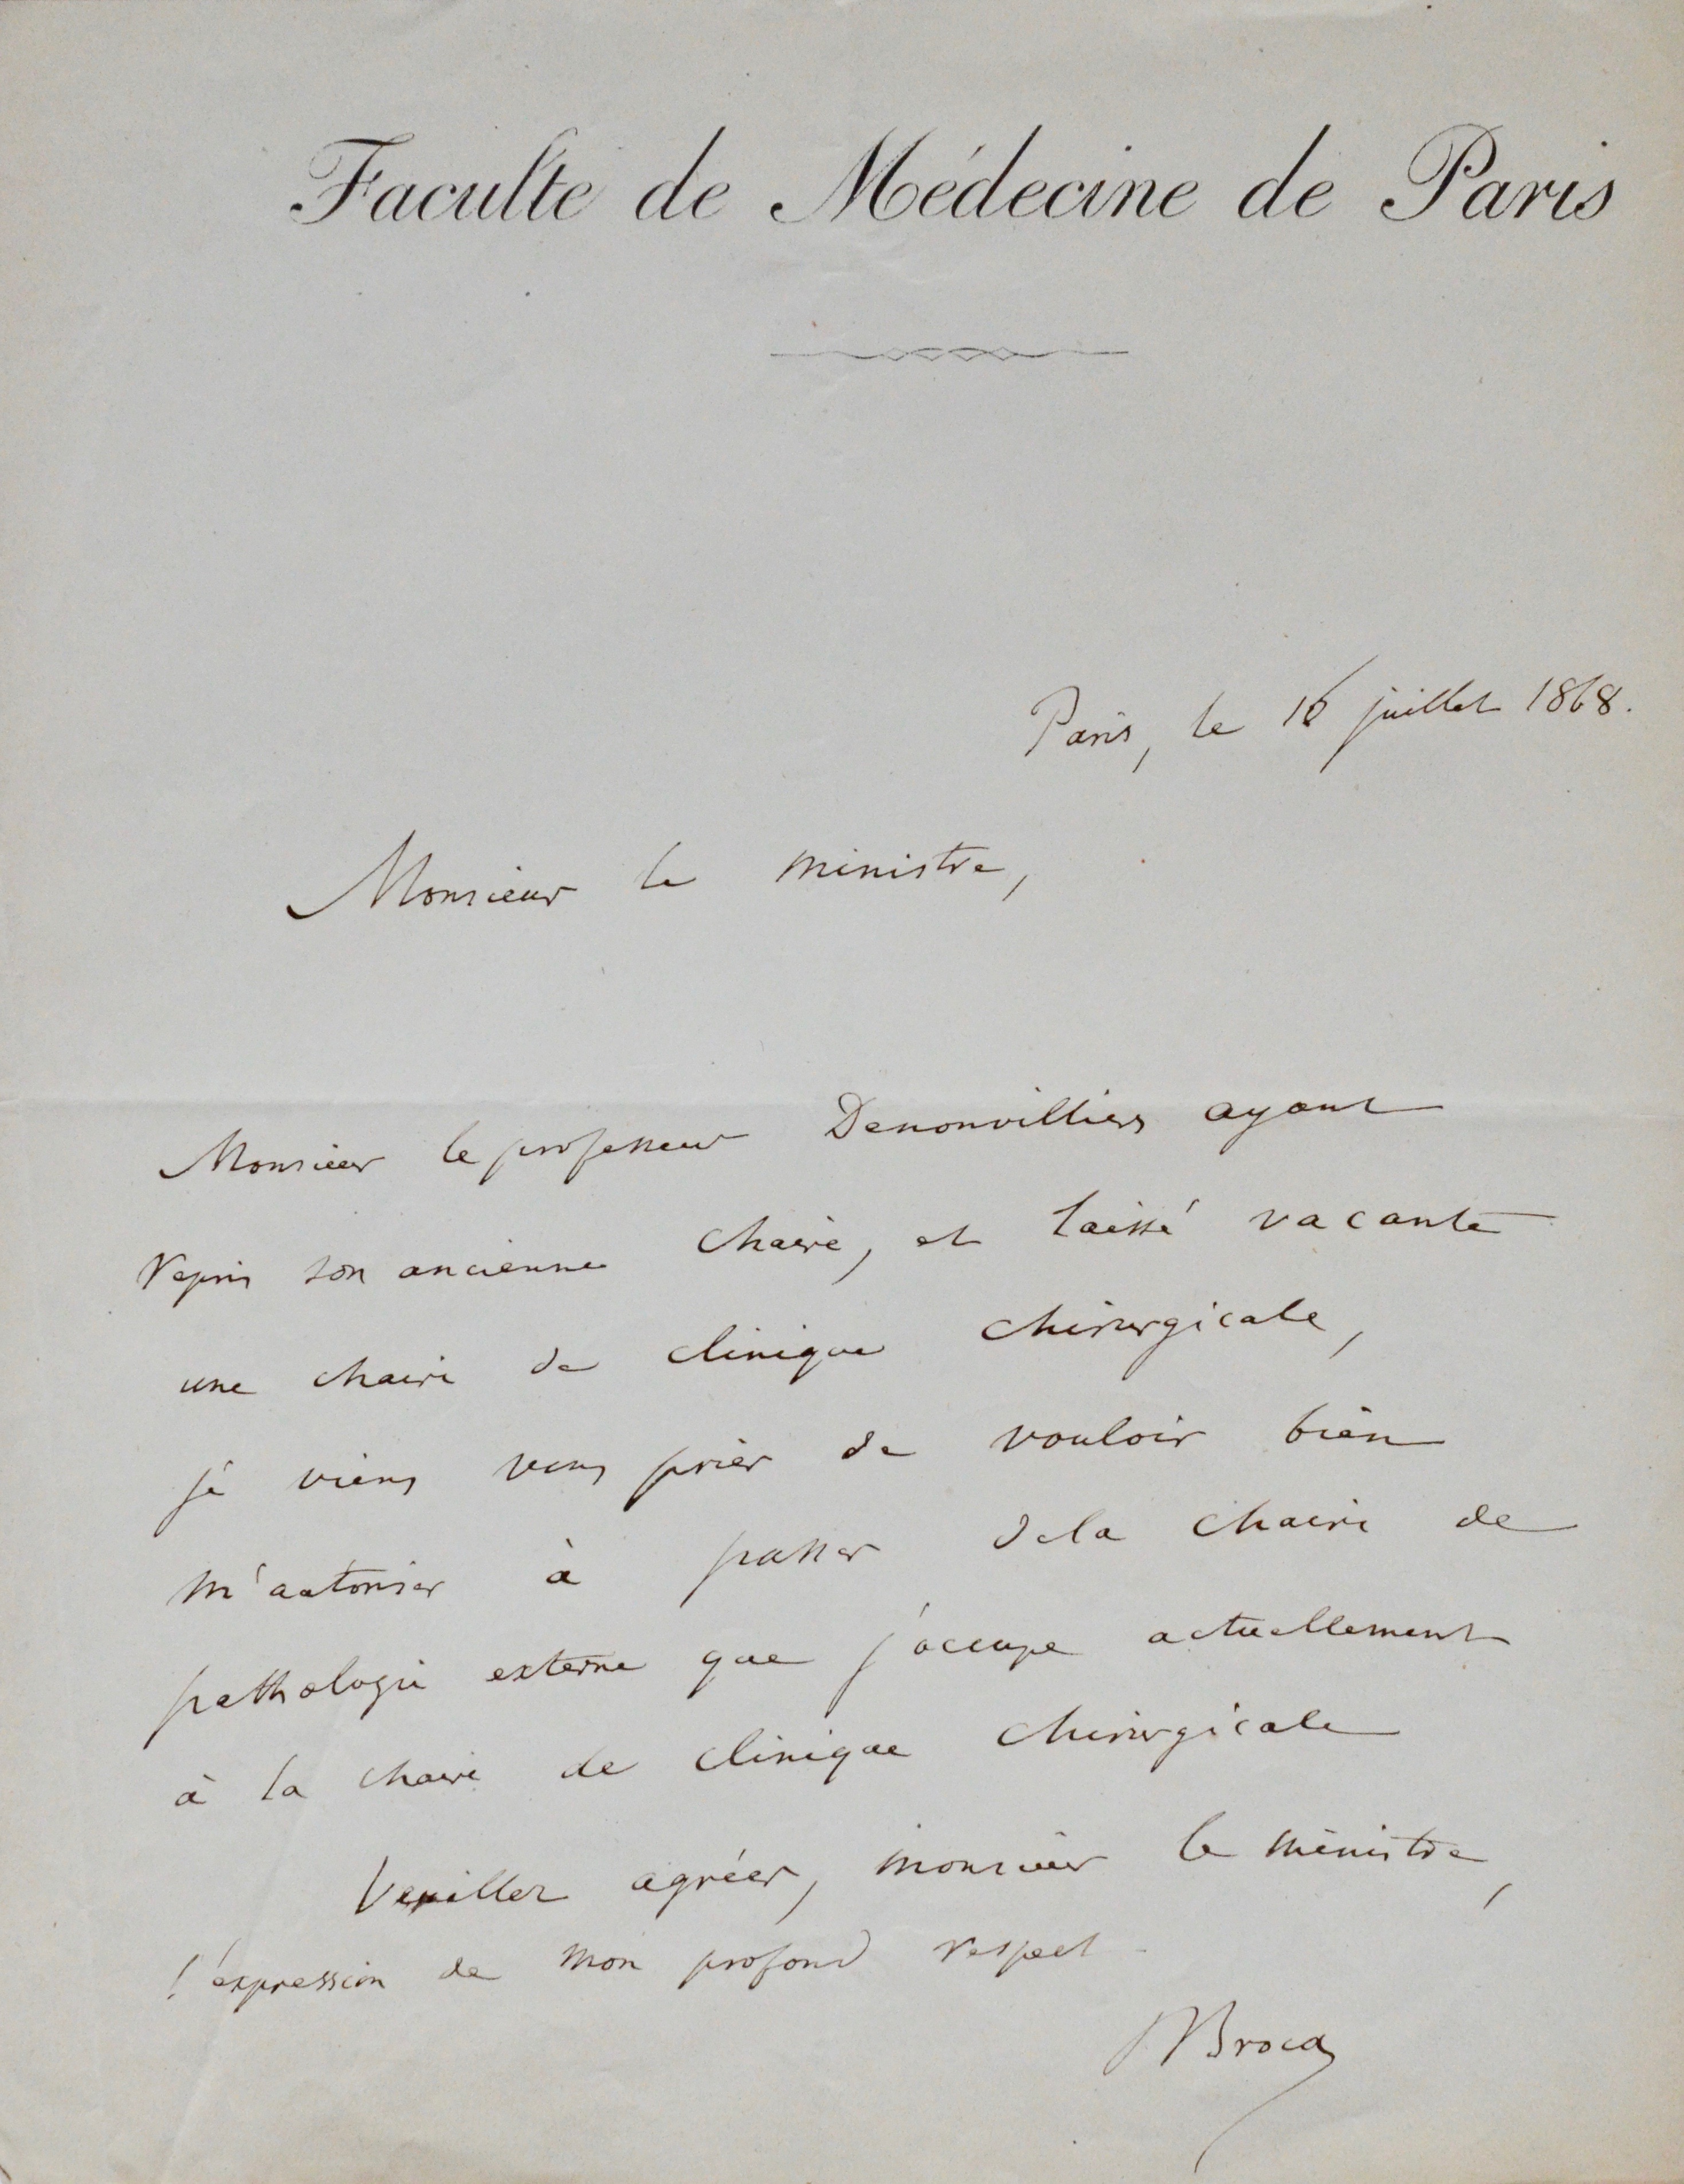 Faculté de Médecine de Paris
Paris, le 16 juillet 1868.
Monsieur le ministre,
Monsieur le professeur Denonvilliers ayant
repris son ancienne chaire, et laissé vacante
une chaire de clinique chirurgicale,
je viens vous prier de vouloir bien
m'autoriser à passer de la chaire de
pathologie externe que j'occupe actuellement
à la chaire de clinique chirurgicale
Veuillez agréer, monsieur le ministre,
l'expression de mon profond respect.
P Broca